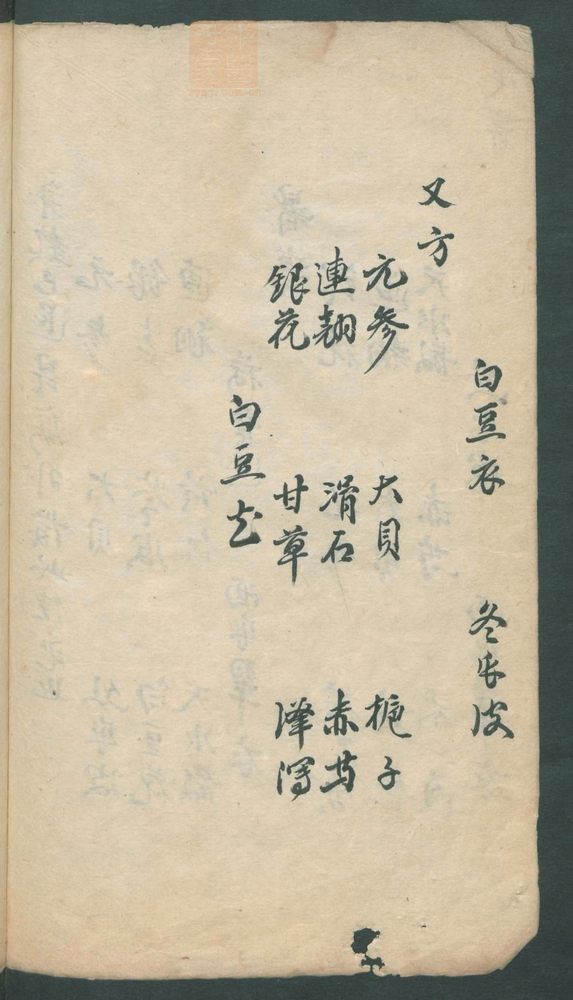 白豆衣 冬瓜皮
又方
元參 大貝 梔子
連翹 滑石 赤芍
銀花 甘草 澤瀉
白豆